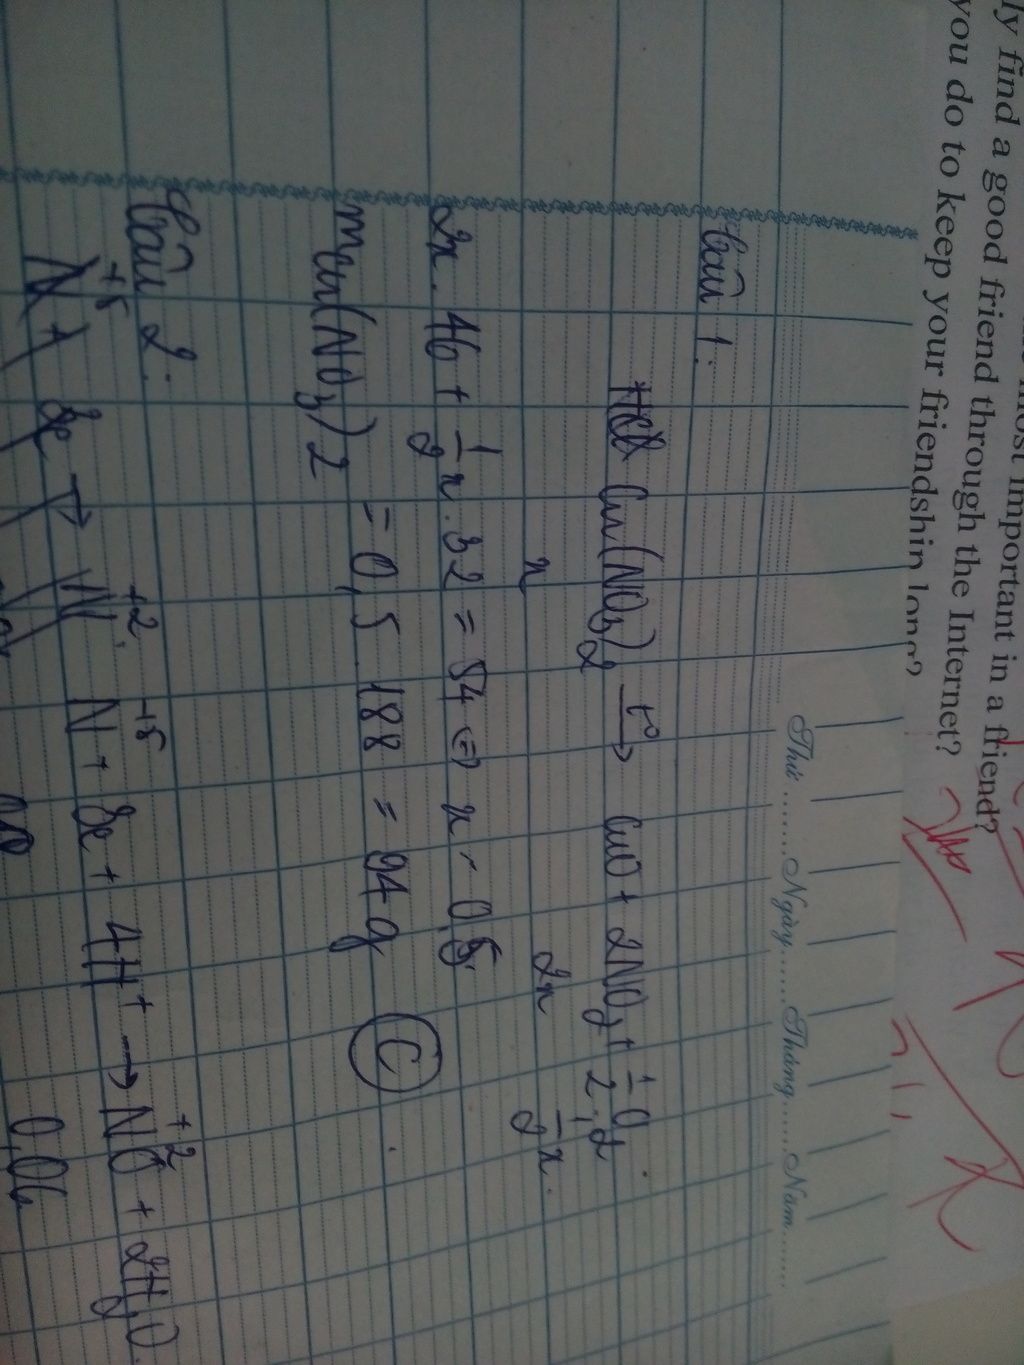 most important in a friend?
ly find a good friend through the Internet?
you do to keep your friendship long?
Thứ ........ Ngày ...... Tháng ...... Năm .......
Câu 1:
Cu(NO3)2 t° → CuO + 2NO2 + 1/2 O2.
x 2x 1/2 x.
2x. 46 + 1/2 x. 32 = 54 ⇔ x = 0,5.
mCu(NO3)2 = 0,5. 188 = 94g (C).
Câu 2:
N+5 + 3e → N+2. N+5 + 3e + 4H+ → N+2O + 2H2O.
0,06